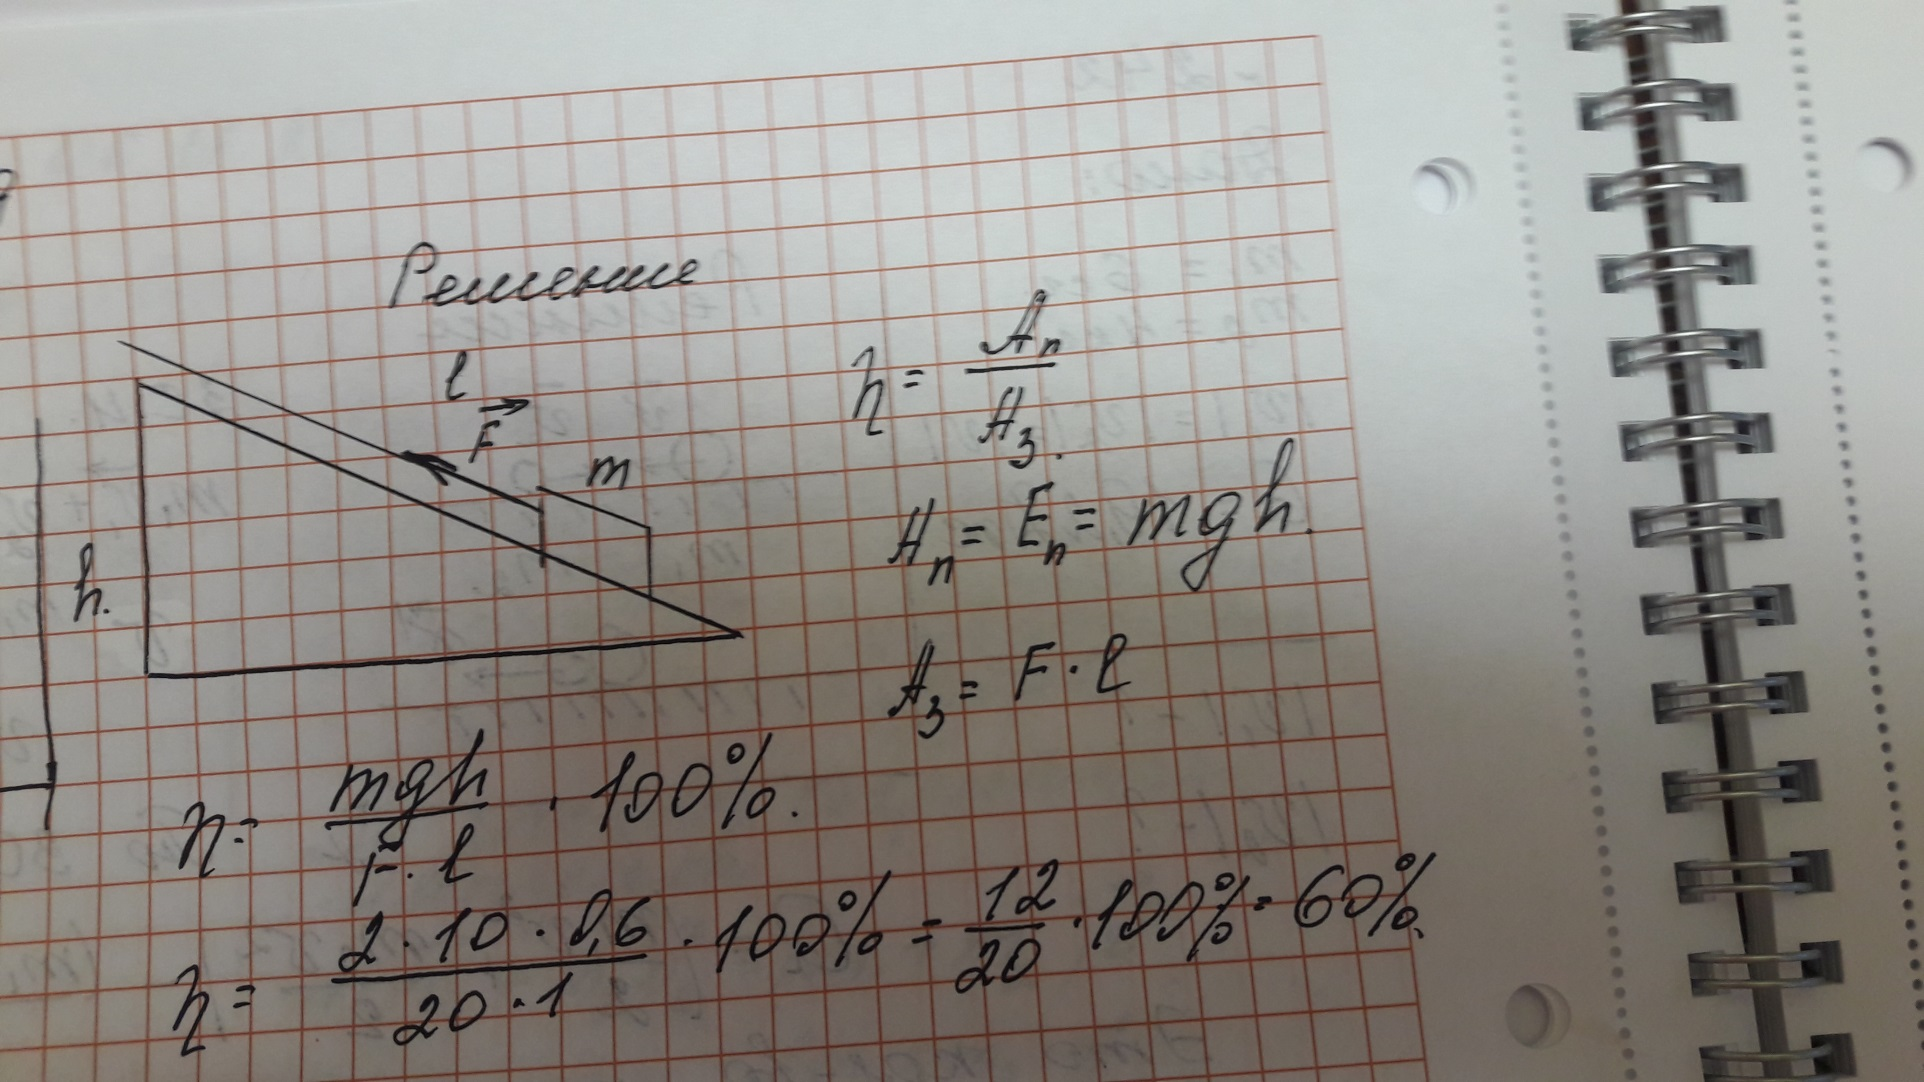 Решение
l
F
m
h.
η = Aп / Aз.
Aп = Eп = mgh.
Aз = F · l
η = mgh / F · l · 100%.
η = 2 · 10 · 0,6 / 20 · 1 · 100% = 12 / 20 · 100% = 60%.